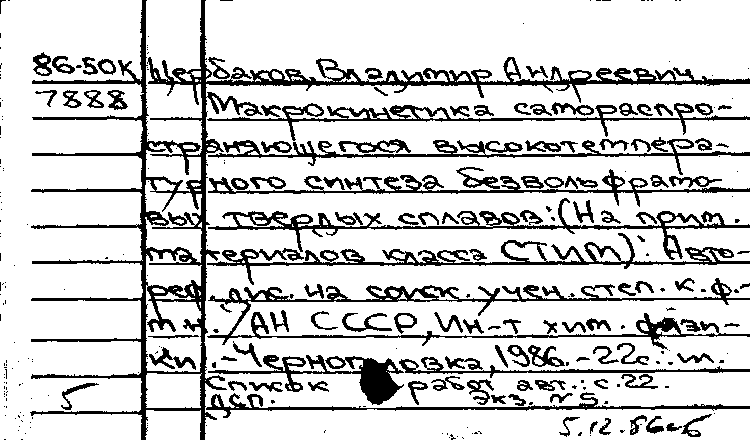 86-50к Щербаков, Владимир Андреевич.
7888 Макрокинетика самораспро-
страняющегося высокотемпера-
турного синтеза безвольфрамо-
вых твердых сплавов: (На прим.
материалов класса СТИМ): Авто-
реф. дис. на соиск. учен. степ. к.ф.-
м.н. / АН СССР, Ин-т хим. физи-
ки. - Черноголовка, 1986. - 22с.: ил.
5 Список работ авт.: с. 22.
ДСП. Экз. № 5.
5.12.86